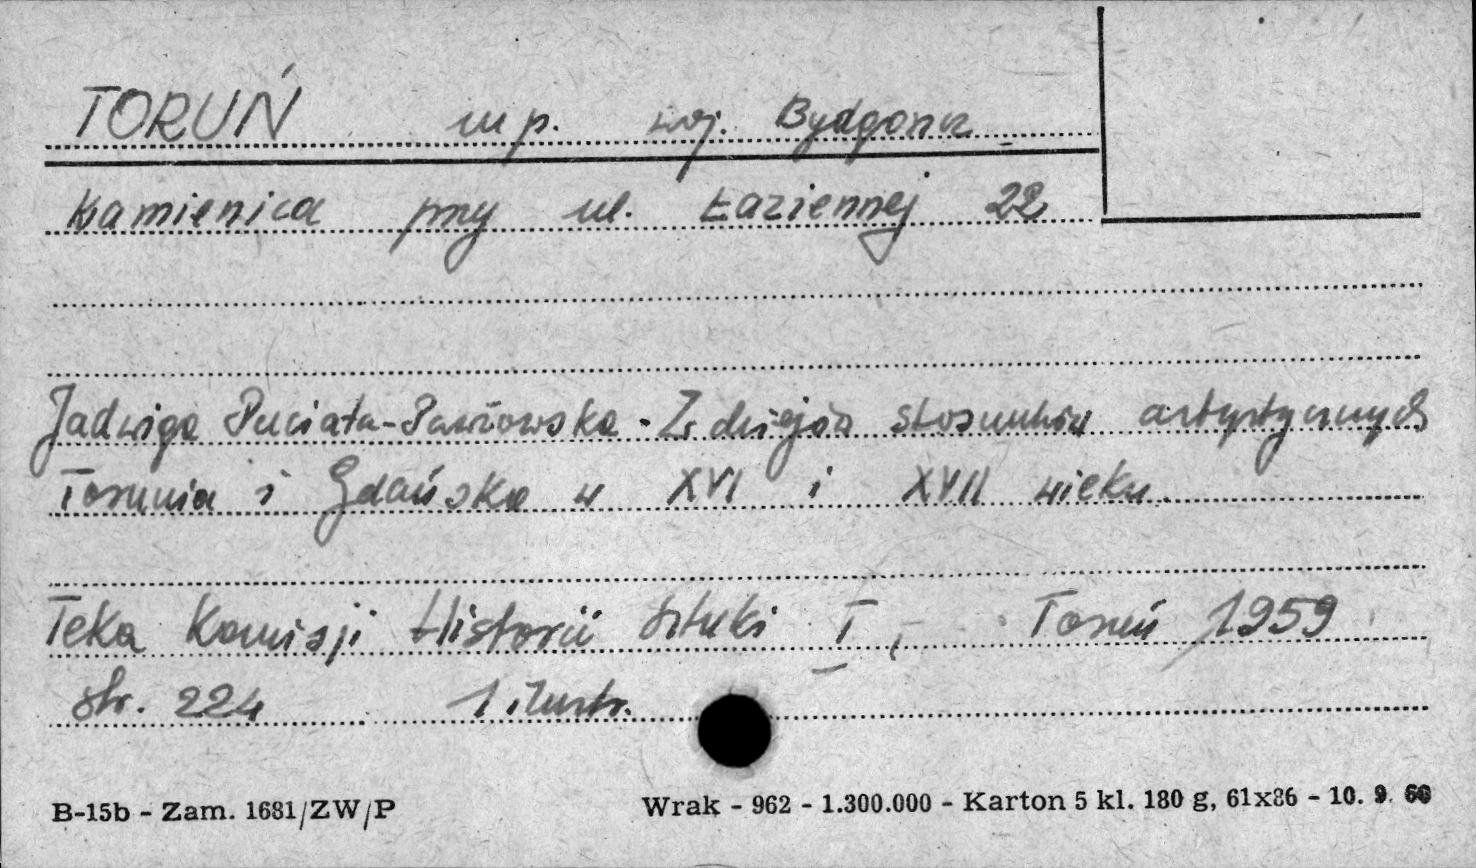 TORUŃ mp. woj. Bydgoszcz
Kamienica przy ul. Łaziennej 22
Jadwiga Puciata-Pawłowska - Z dziejów stosunków artystycznych
Torunia i Gdańska w XVI i XVII wieku.
Teka Komisji Historii Sztuki I, Toruń 1959
str. 224 1 ilustr.
B-15b - Zam. 1681/ZW/P Wrak - 962 - 1.300.000 - Karton 5 kl. 180 g, 61x86 - 10. 9. 60